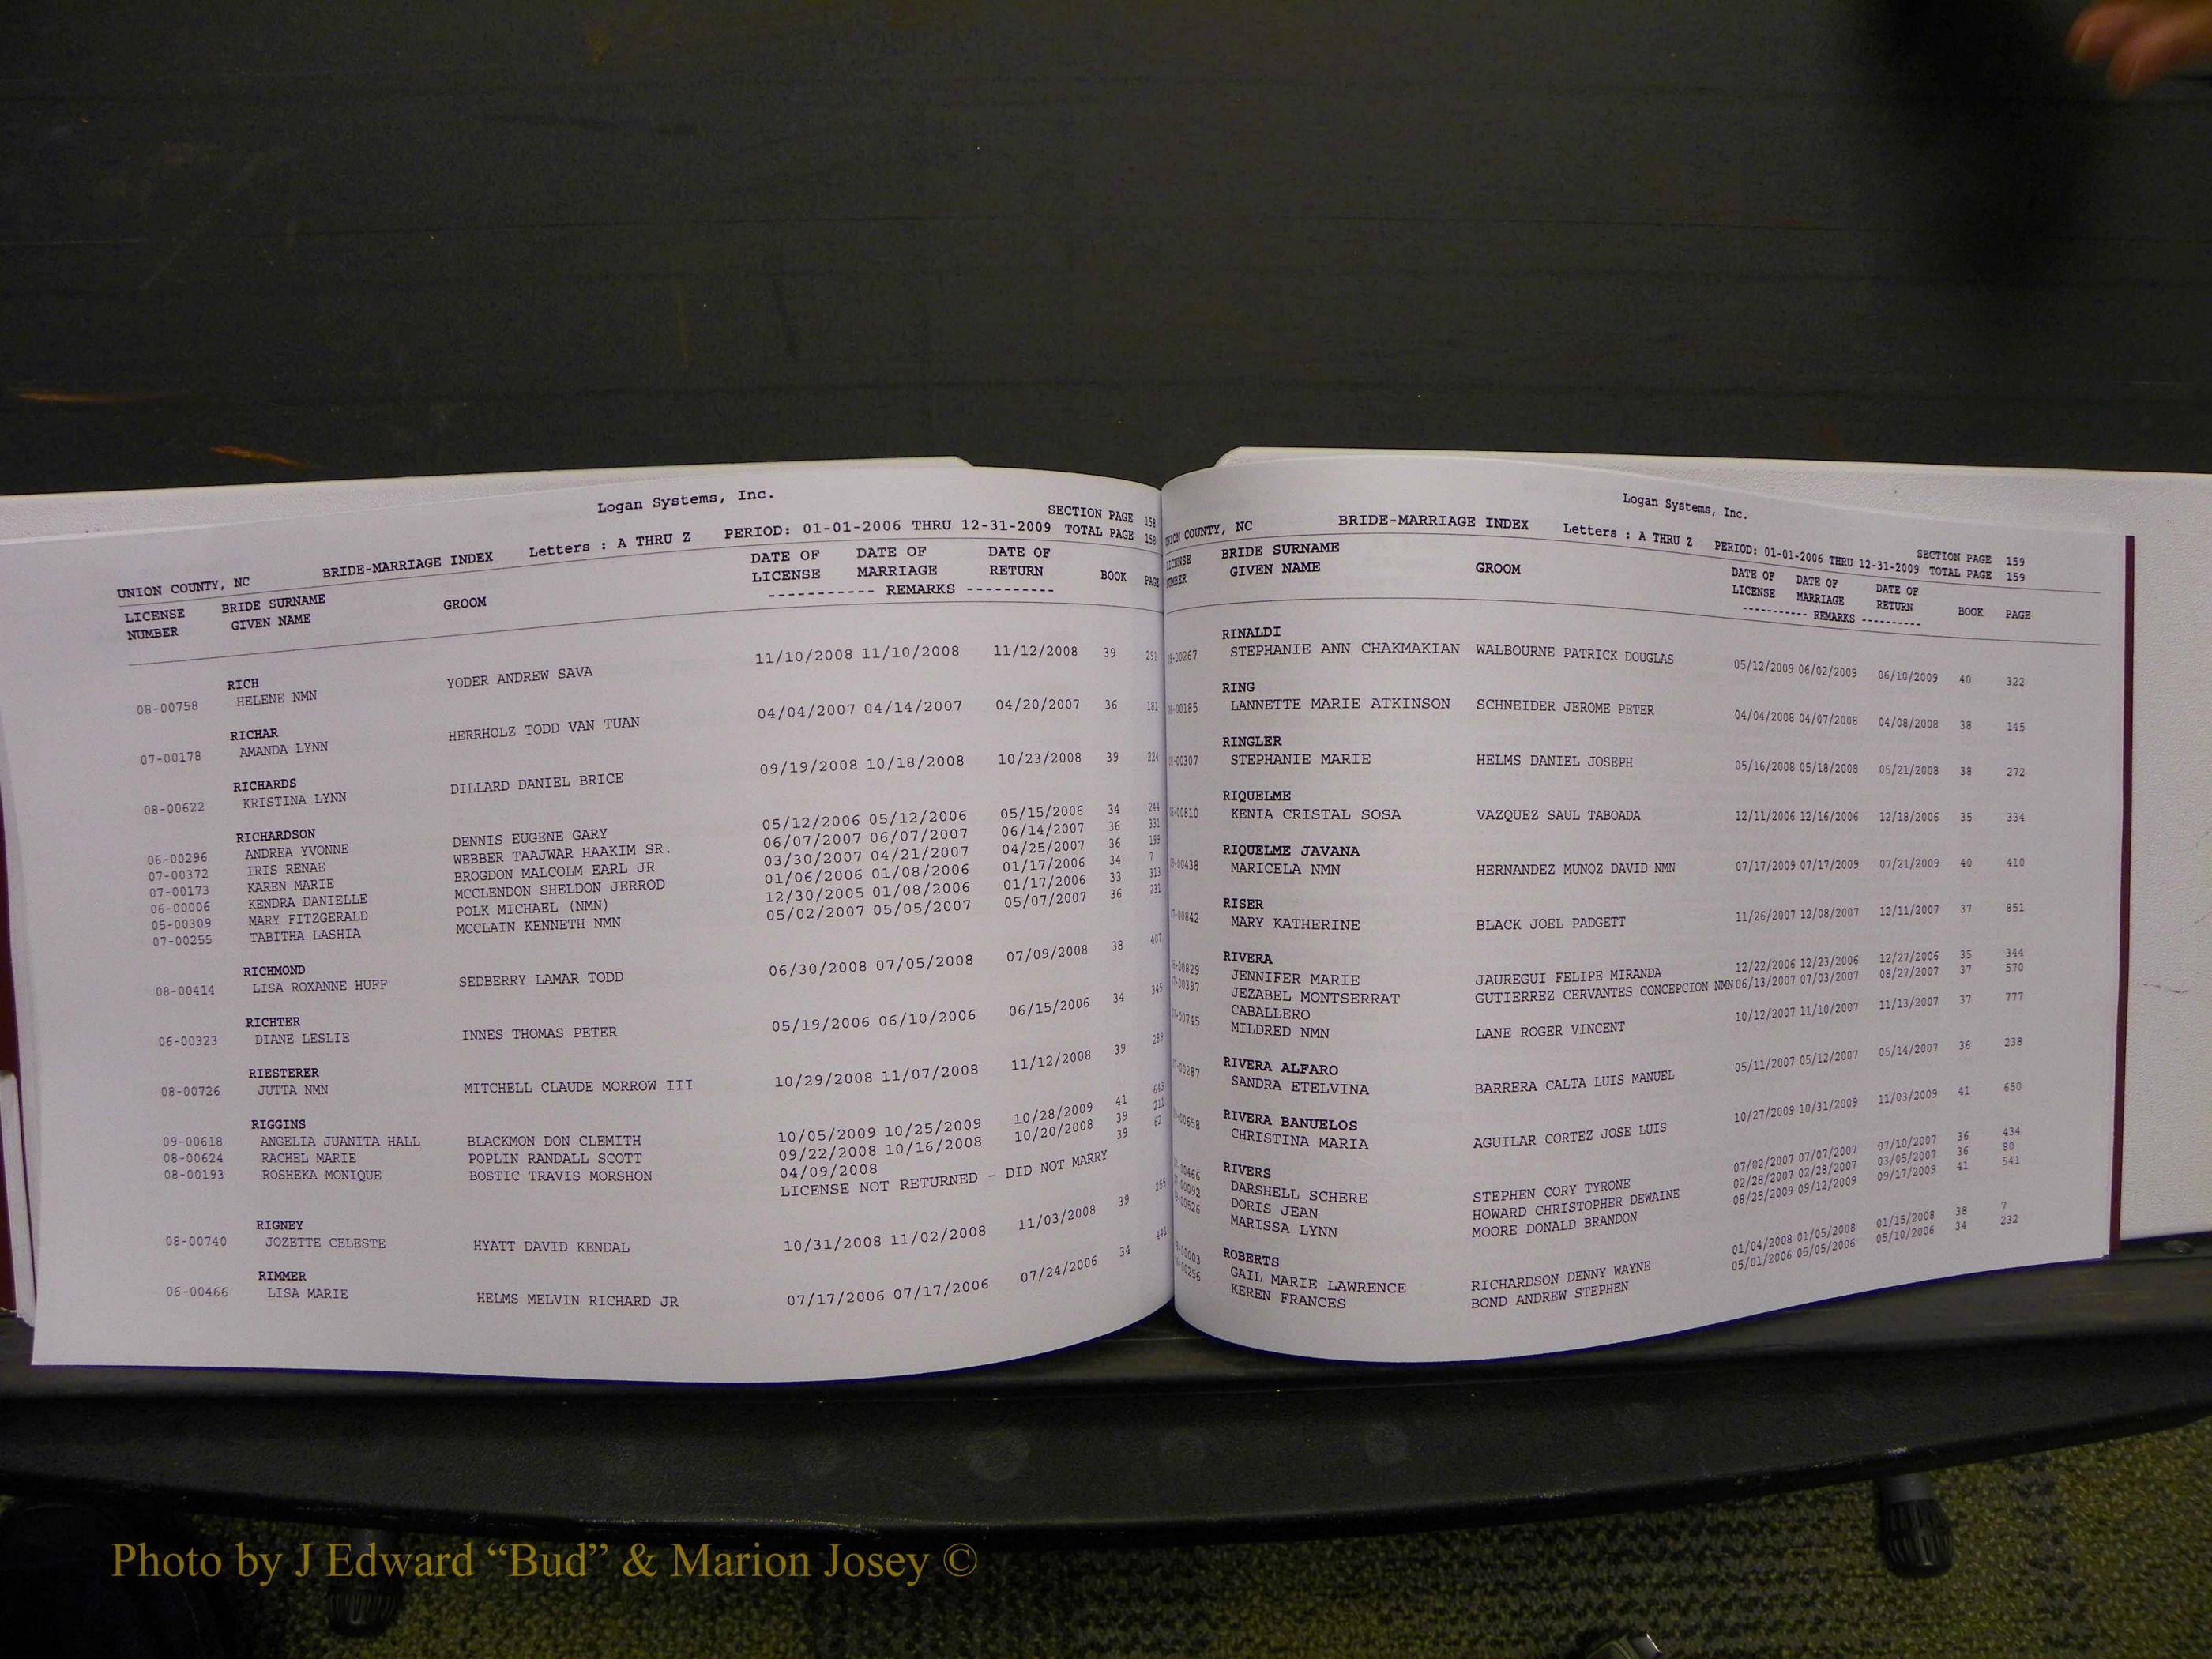 Logan Systems, Inc.
SECTION PAGE 158
UNION COUNTY, NC BRIDE-MARRIAGE INDEX Letters : A THRU Z PERIOD: 01-01-2006 THRU 12-31-2009 TOTAL PAGE 158
LICENSE BRIDE SURNAME GROOM DATE OF DATE OF DATE OF
NUMBER GIVEN NAME LICENSE MARRIAGE RETURN BOOK PAGE
----------- REMARKS ----------
RICH
08-00758 HELENE NMN YODER ANDREW SAVA 11/10/2008 11/10/2008 11/12/2008 39 291
RICHAR
07-00178 AMANDA LYNN HERRHOLZ TODD VAN TUAN 04/04/2007 04/14/2007 04/20/2007 36 181
RICHARDS
08-00622 KRISTINA LYNN DILLARD DANIEL BRICE 09/19/2008 10/18/2008 10/23/2008 39 224
RICHARDSON
06-00296 ANDREA YVONNE DENNIS EUGENE GARY 05/12/2006 05/12/2006 05/15/2006 34 244
07-00372 IRIS RENAE WEBBER TAAJWAR HAAKIM SR. 06/07/2007 06/07/2007 06/14/2007 36 331
07-00173 KAREN MARIE BROGDON MALCOLM EARL JR 03/30/2007 04/21/2007 04/25/2007 36 199
06-00006 KENDRA DANIELLE MCCLENDON SHELDON JERROD 01/06/2006 01/08/2006 01/17/2006 34 7
05-00309 MARY FITZGERALD POLK MICHAEL (NMN) 12/30/2005 01/08/2006 01/17/2006 33 313
07-00255 TABITHA LASHIA MCCLAIN KENNETH NMN 05/02/2007 05/05/2007 05/07/2007 36 231
RICHMOND
08-00414 LISA ROXANNE HUFF SEDBERRY LAMAR TODD 06/30/2008 07/05/2008 07/09/2008 38 407
RICHTER
06-00323 DIANE LESLIE INNES THOMAS PETER 05/19/2006 06/10/2006 06/15/2006 34 345
RIESTERER
08-00726 JUTTA NMN MITCHELL CLAUDE MORROW III 10/29/2008 11/07/2008 11/12/2008 39 289
RIGGINS
09-00618 ANGELIA JUANITA HALL BLACKMON DON CLEMITH 10/05/2009 10/25/2009 10/28/2009 41 643
08-00624 RACHEL MARIE POPLIN RANDALL SCOTT 09/22/2008 10/16/2008 10/20/2008 39 211
08-00193 ROSHEKA MONIQUE BOSTIC TRAVIS MORSHON 04/09/2008 39 62
LICENSE NOT RETURNED - DID NOT MARRY
RIGNEY
08-00740 JOZETTE CELESTE HYATT DAVID KENDAL 10/31/2008 11/02/2008 11/03/2008 39 255
RIMMER
06-00466 LISA MARIE HELMS MELVIN RICHARD JR 07/17/2006 07/17/2006 07/24/2006 34 441
Logan Systems, Inc.
SECTION PAGE 159
COUNTY, NC BRIDE-MARRIAGE INDEX Letters : A THRU Z PERIOD: 01-01-2006 THRU 12-31-2009 TOTAL PAGE 159
BRIDE SURNAME GROOM DATE OF DATE OF DATE OF
GIVEN NAME LICENSE MARRIAGE RETURN BOOK PAGE
----------- REMARKS ----------
RINALDI
STEPHANIE ANN CHAKMAKIAN WALBOURNE PATRICK DOUGLAS 05/12/2009 06/02/2009 06/10/2009 40 322
RING
LANNETTE MARIE ATKINSON SCHNEIDER JEROME PETER 04/04/2008 04/07/2008 04/08/2008 38 145
RINGLER
STEPHANIE MARIE HELMS DANIEL JOSEPH 05/16/2008 05/18/2008 05/21/2008 38 272
RIQUELME
KENIA CRISTAL SOSA VAZQUEZ SAUL TABOADA 12/11/2006 12/16/2006 12/18/2006 35 334
RIQUELME JAVANA
MARICELA NMN HERNANDEZ MUNOZ DAVID NMN 07/17/2009 07/17/2009 07/21/2009 40 410
RISER
MARY KATHERINE BLACK JOEL PADGETT 11/26/2007 12/08/2007 12/11/2007 37 851
RIVERA
JENNIFER MARIE JAUREGUI FELIPE MIRANDA 12/22/2006 12/23/2006 12/27/2006 35 344
JEZABEL MONTSERRAT GUTIERREZ CERVANTES CONCEPCION NMN 06/13/2007 07/03/2007 08/27/2007 37 570
CABALLERO
MILDRED NMN LANE ROGER VINCENT 10/12/2007 11/10/2007 11/13/2007 37 777
RIVERA ALFARO
SANDRA ETELVINA BARRERA CALTA LUIS MANUEL 05/11/2007 05/12/2007 05/14/2007 36 238
RIVERA BANUELOS
CHRISTINA MARIA AGUILAR CORTEZ JOSE LUIS 10/27/2009 10/31/2009 11/03/2009 41 650
RIVERS
DARSHELL SCHERE STEPHEN CORY TYRONE 07/02/2007 07/07/2007 07/10/2007 36 434
DORIS JEAN HOWARD CHRISTOPHER DEWAINE 02/28/2007 02/28/2007 03/05/2007 36 80
MARISSA LYNN MOORE DONALD BRANDON 08/25/2009 09/12/2009 09/17/2009 41 541
ROBERTS
GAIL MARIE LAWRENCE RICHARDSON DENNY WAYNE 01/04/2008 01/05/2008 01/15/2008 38 7
KEREN FRANCES BOND ANDREW STEPHEN 05/01/2006 05/05/2006 05/10/2006 34 232
Photo by J Edward “Bud” & Marion Josey ©